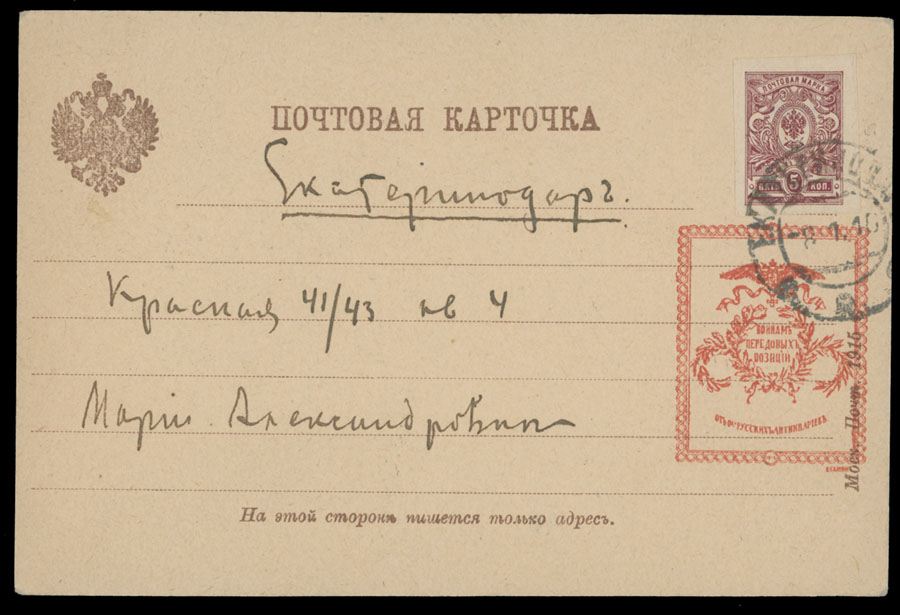 ПОЧТОВАЯ КАРТОЧКА
ПОЧТОВАЯ МАРКА
ПЯТЬ 5 КОП.
Екатеринодаръ.
Красная 41/43 кв 4
ВОИНАМЪ
ПЕРЕДОВЫХЪ
ПОЗИЦІЙ
Маріи Александровнѣ
Моск. Почт. 1915
На этой сторонѣ пишется только адресъ.